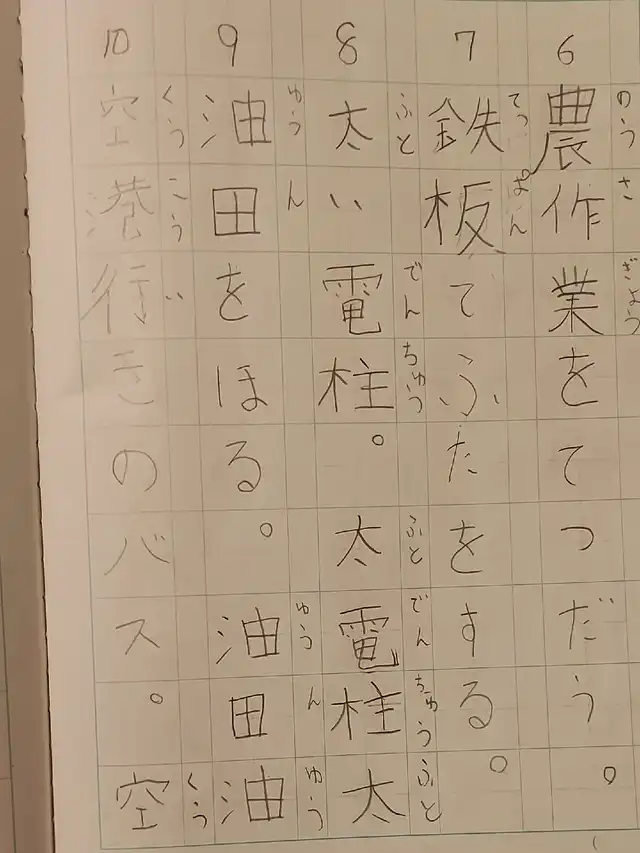 6
農作業をてつだう。
のうさぎょう
7
鉄板でふたをする。
てっぱん
8
太い電柱。太電柱太
ふとでんちゅうふとでんちゅうふと
9
油田をほる。油田油
ゆうんゆうんゆう
10
空港行きのバス。空
くうこういくう